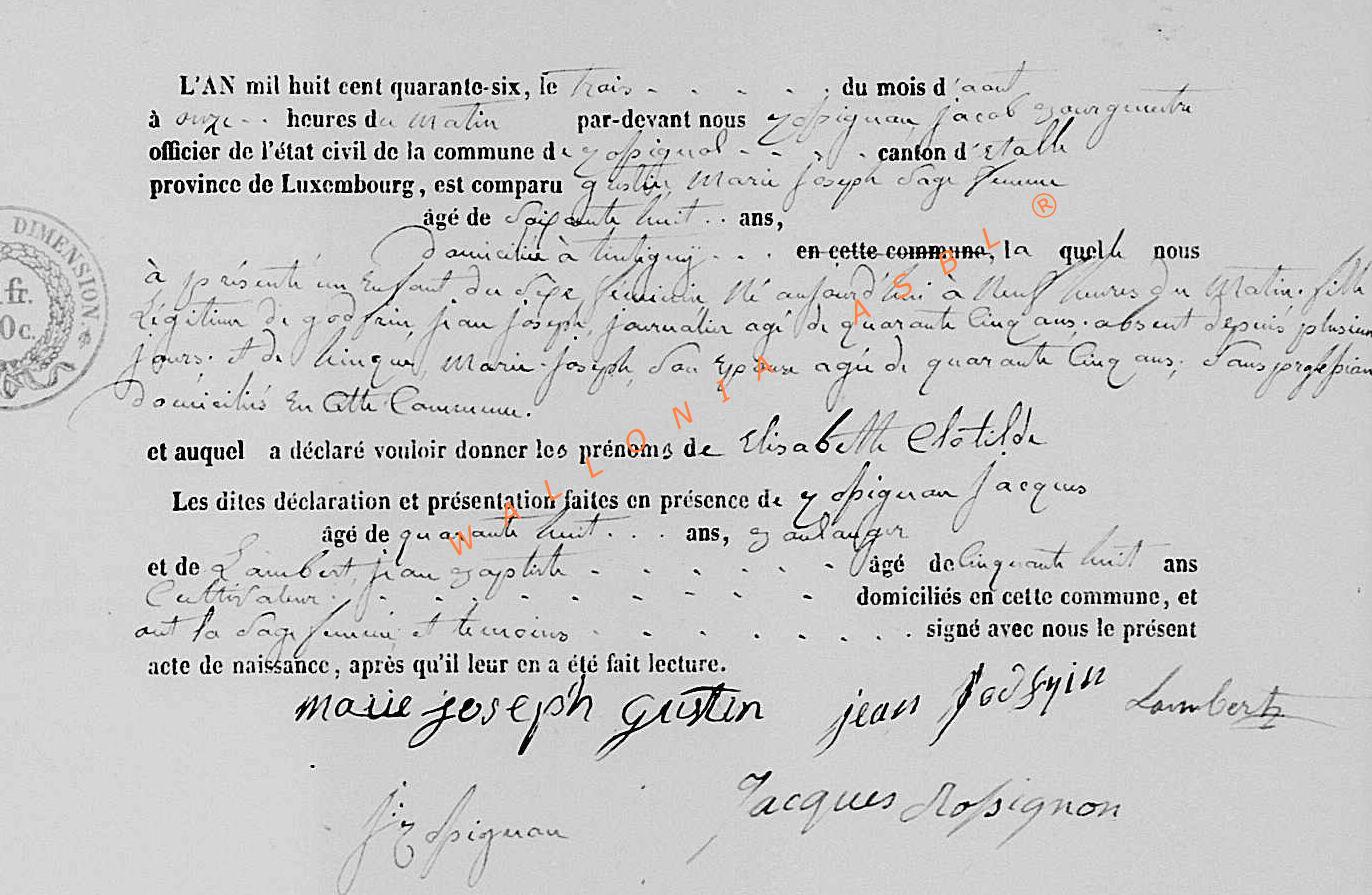 L'AN mil huit cent quarante-six, le trois - - - - - du mois d'aout
à onze - - heures du matin par-devant nous Rossignon jacob Bourguestre
officier de l'état civil de la commune de Rossignol - - - - canton d'Etalle
province de Luxembourg, est comparu gustin, Marie joseph Sage femme
âgé de Soixante huit - - ans,
Domiciliée à tintigny - - - en cette commune, la quelle nous
à présenté un Enfant du Sexe féminin Né aujourd'hui à Neuf heures du Matin. fille
Légitime de godfrin, jean joseph, journalier agé de quarante Cinq ans. absent depuis plusieurs
jours. et de hinque, Marie-joseph, Son Epouse agée de quarante Cinq ans, Sans profession
Domiciliés En Cette Commune.
et auquel a déclaré vouloir donner les prénoms de Elisabette Clotilde
Les dites déclaration et présentation faites en présence de Rossignon Jacques
âgé de quarante huit - - - ans, Boulanger
et de Lambert, jean Baptiste - - - - - - âgé de Cinquante huit ans
Cultivateur - - - - - - - - - domiciliés en cette commune, et
ont la Sage femme et temoins - - - - - - - signé avec nous le présent
acte de naissance, après qu'il leur en a été fait lecture.
marie joseph gustin jean Lambert
j Rossignon Jacques Rossignon
DIMENSION.
fr.
0c.
WALLONIA ASBL ®